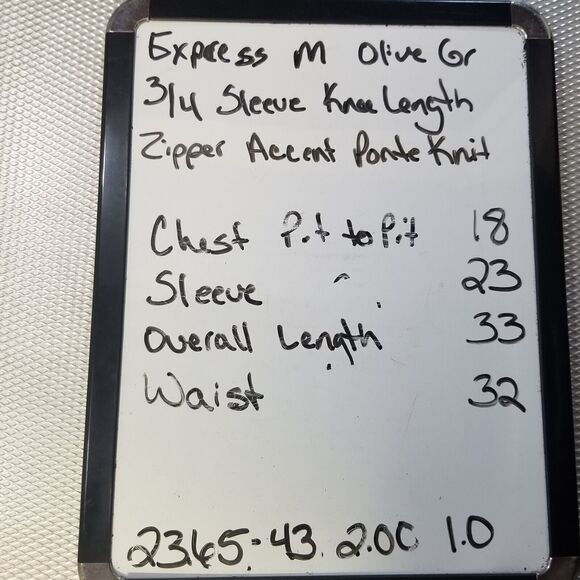 Express M Olive Gr
3/4 Sleeve Knee Length
Zipper Accent Ponte Knit
Chest Pit to Pit 18
Sleeve 23
Overall Length 33
Waist 32
2365-43 2.00 1.0